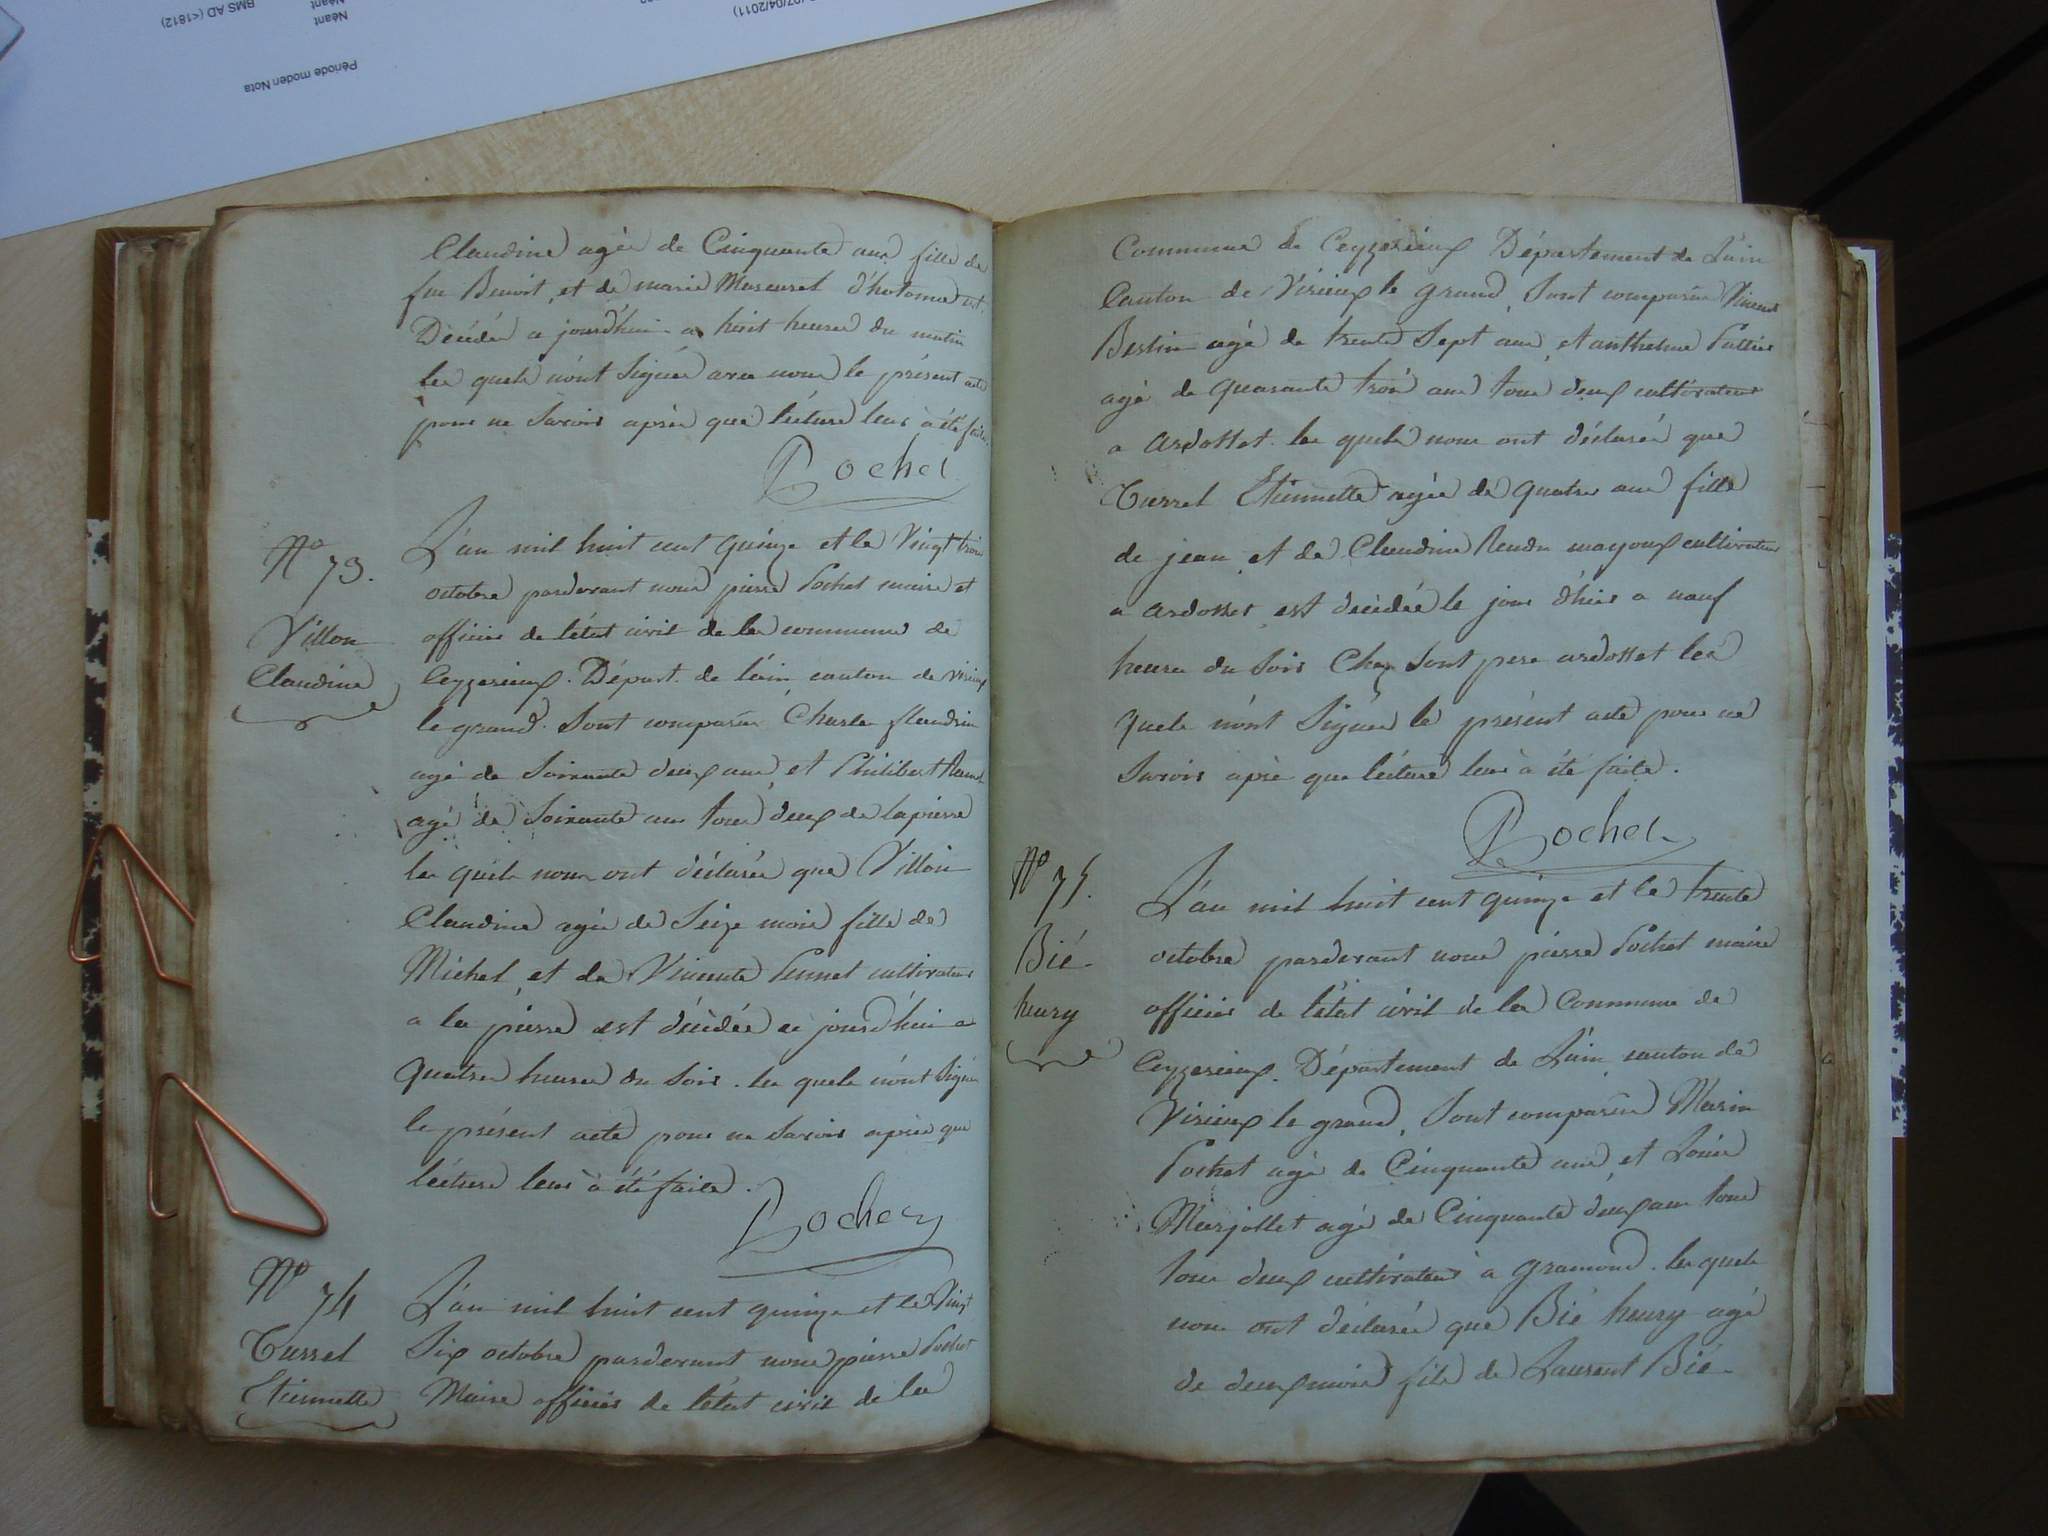 /07/04/2011)
BMS AD (<1812)
Néant
Néant
Période moder Nota
Claudine agée de Cinquante ans fille de
feu Benoit, et de marie Mascuret d'hotonne est
Décédée a jourd'hui a huit heures du matin
les quels n'ont Signés avec nous le présent acte
pour ne Savoir après que lecture leur à été faite.
Pochet
N° 73.
Villon
Claudine
L'an mil huit cent quinze et le Vingt trois
octobre pardevant nous pierre Pochet maire et
officier de l'état civil de la commune de
Ceyzerieux. Départ. de l'ain canton de Virieux
le grand. Sont comparus Charles flandrin
agé de Soixante deux ans, et Philibert
agé de Soixante ans tous deux de lapierre
les quels nous ont déclarés que Villon
Claudine agée de Seize mois fille de
Michel, et de Vincente Pennet cultivateurs
a la pierre est décédée ce jourd'hui a
quatre heures du Soir. les quels n'ont Signés
le présent acte pour ne Savoir après que
lecture leur à été faite.
Pochet
N° 74
Turrel
Etiennette
L'an mil huit cent quinze et le Vingt
Six octobre pardevant nous pierre Pochet
Maire officier de l'état civil de la
Commune de Ceyzerieux Département de L'ain
Canton de Virieux le grand, Sont comparus Vincent
Bertin agé de trente Sept ans, et anthelme
agé de quarante trois ans tous deux cultivateurs
a Ardosset. les quels nous ont déclarés que
Turrel Etiennette agée de quatre ans fille
de jean, et de Claudine Rendu mayoux cultivateurs
a ardosset, est décédée le jour d'hier a neuf
heures du Soir Chez Sont pere ardosset les
quels n'ont Signés le présent acte pour ne
Savoir après que lecture leur à été faite.
Pochet
N° 75.
Bié
henry
L'an mil huit cent quinze et le trente
octobre pardevant nous pierre Pochet maire
officier de l'état civil de la Commune de
Ceyzerieux. Département de L'ain, canton de
Virieux le grand, Sont comparus Marin
Pochet agé de Cinquante ans, et Louis
Marjollet agé de Cinquante deux ans tous
tous deux cultivateurs à gramond. les quels
nous ont déclarés que Bié henry agé
de deux mois fils de Laurent Bié